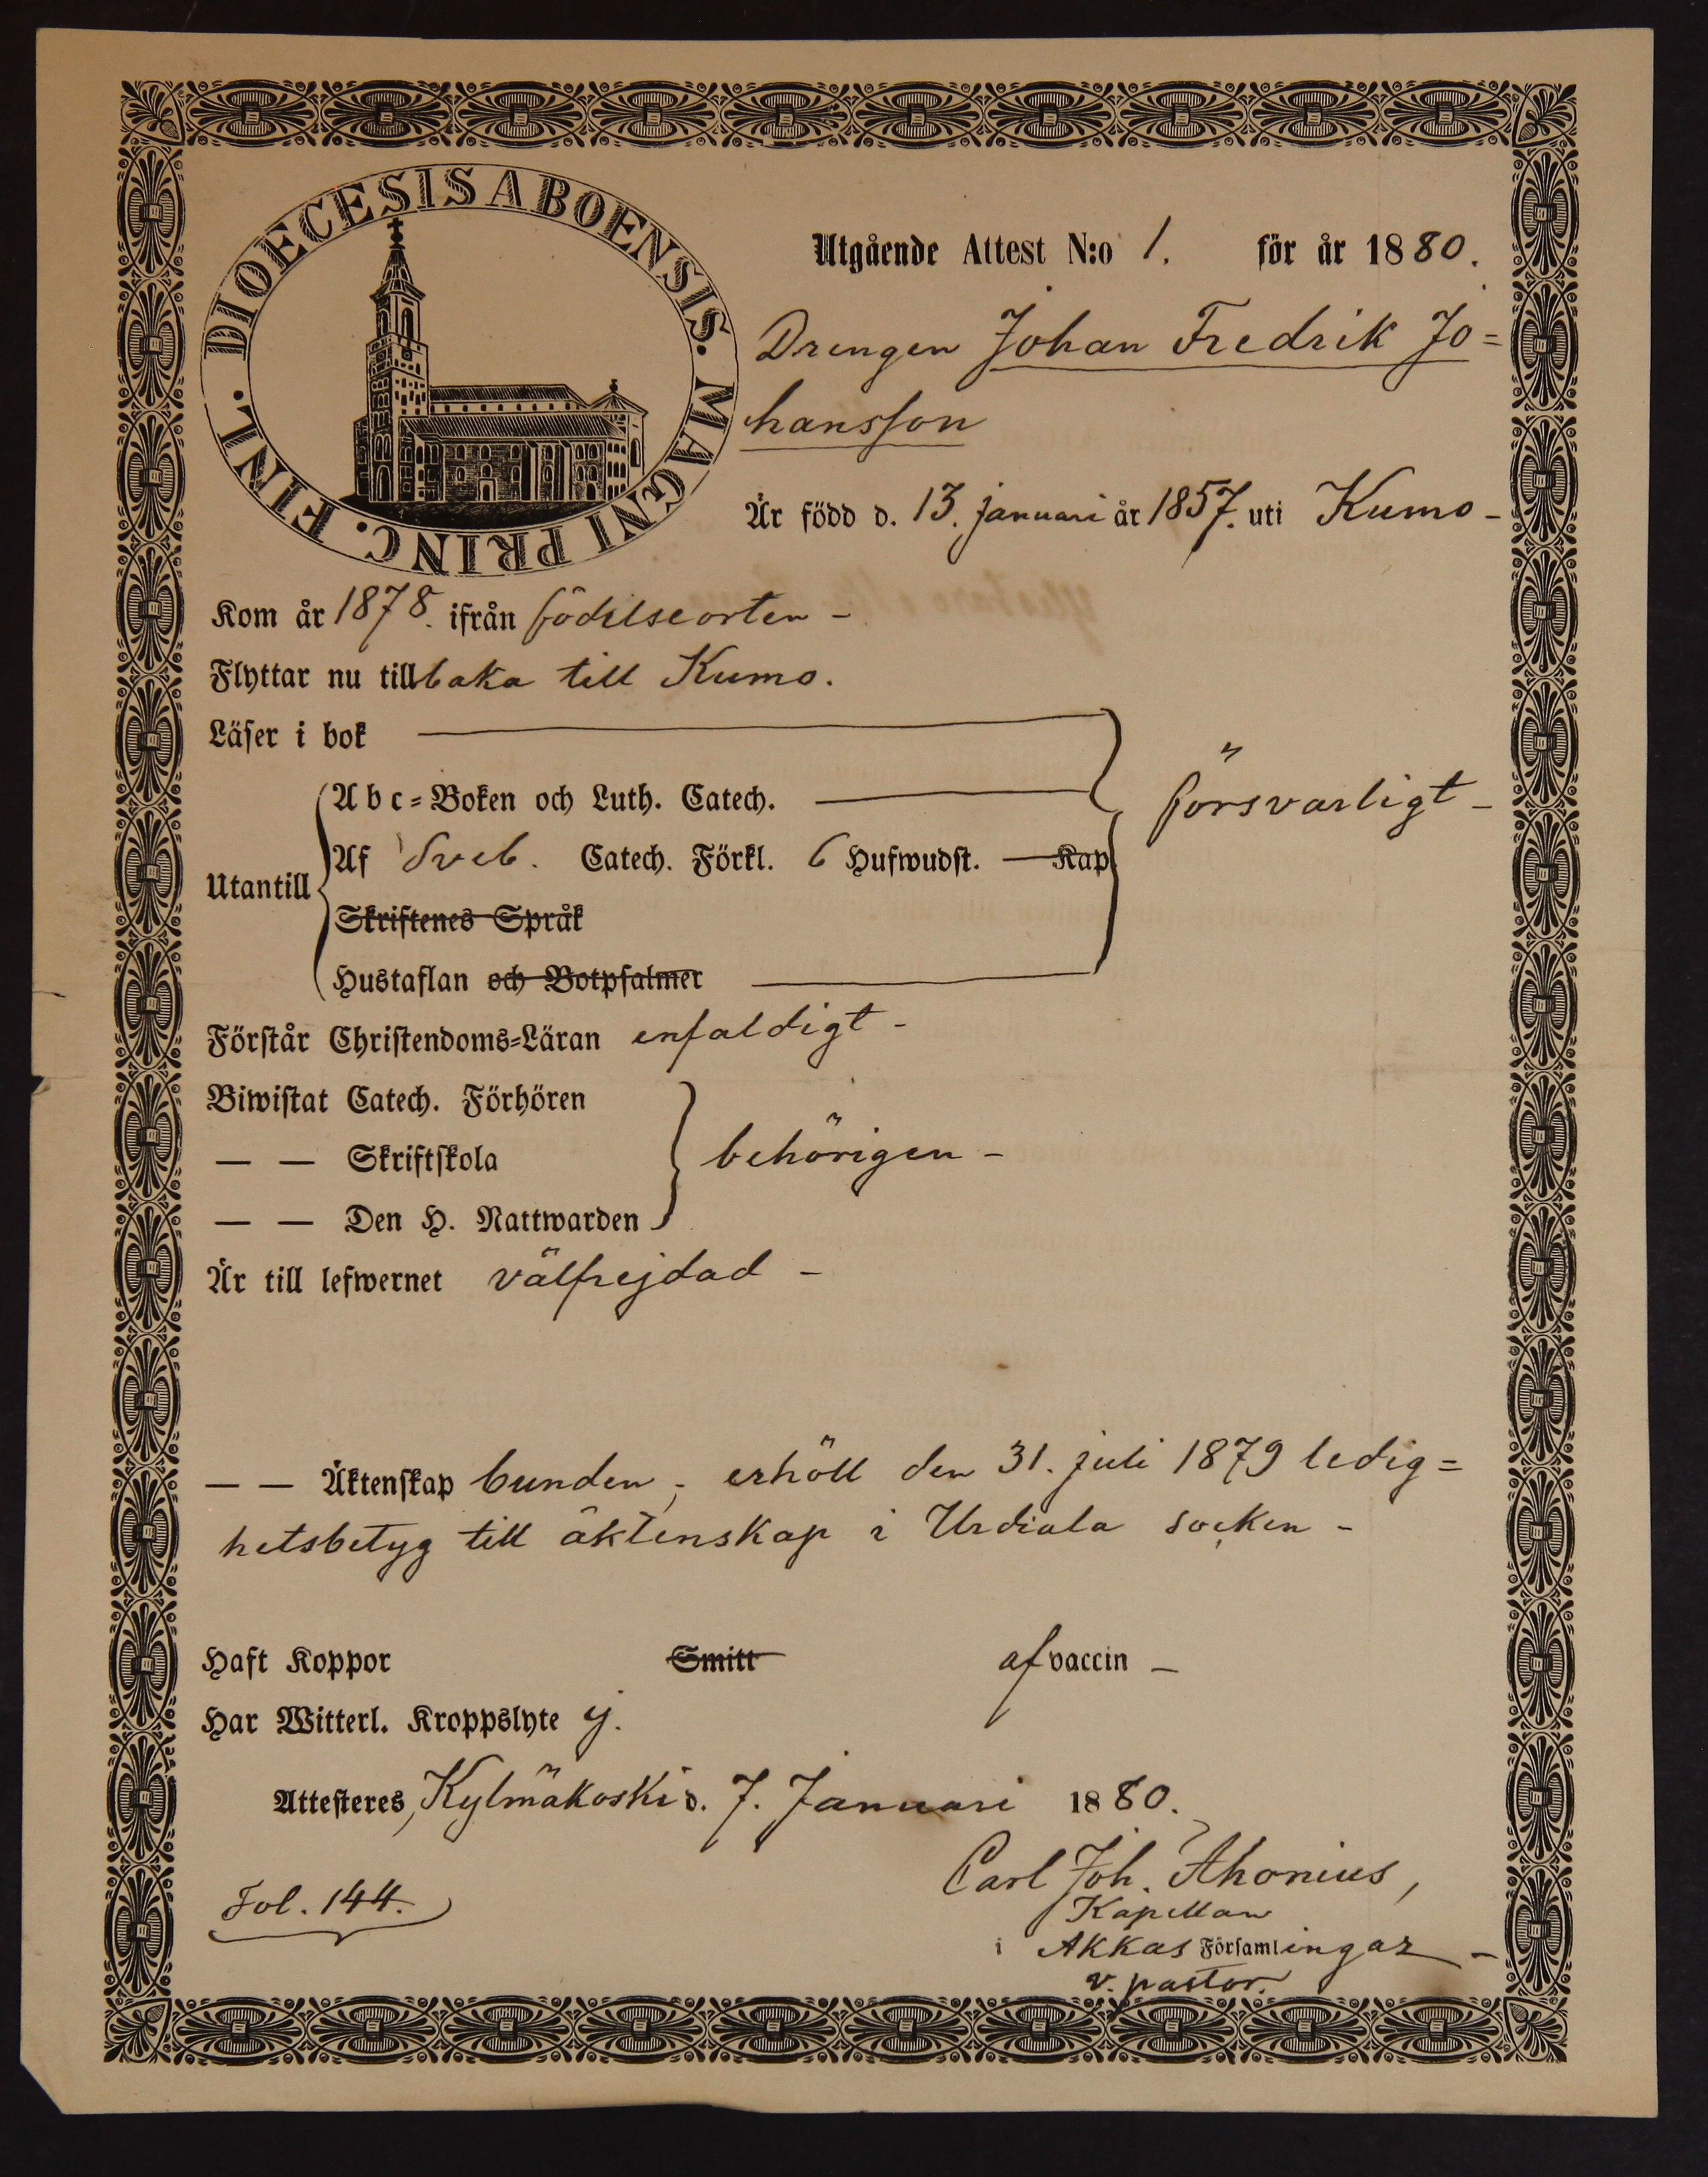 DIOECESIS ABOENSIS. MAGNI PRINC. FINL.
Utgående Attest N:o 1. för år 1880.
Drengen Johan Fredrik Jo=
hansson
Är född d. 13. januari år 1857. uti Kumo –
Kom år 1878. ifrån födelseorten –
Flyttar nu tillbaka till Kumo.
Läser i bok
Abc=Boken och Luth. Catech.
försvarligt –
Utantill
Af Sveb. Catech. Förkl. 6 Hufwudst. — Kap
Skriftenes Språk
Hustaflan och Botpsalmer
Förstår Christendoms=Läran enfaldigt –
Biwistat Catech. Förhören
— — Skriftskola
behörigen –
— — Den H. Nattwarden
Är till lefwernet välfrejdad –
— — Äktenskap bunden, erhöll den 31. juli 1879 ledig=
hetsbetyg till äktenskap i Urdiala socken –
Haft Koppor Smitt af vaccin –
Har Witterl. Kroppslyte ej.
Attesteres, Kylmäkoski d. 7. Januari 1880.
Carl Joh. Ahonius,
Fol. 144.
Kapellan
i Akkas Församlingar –
v. pastor.